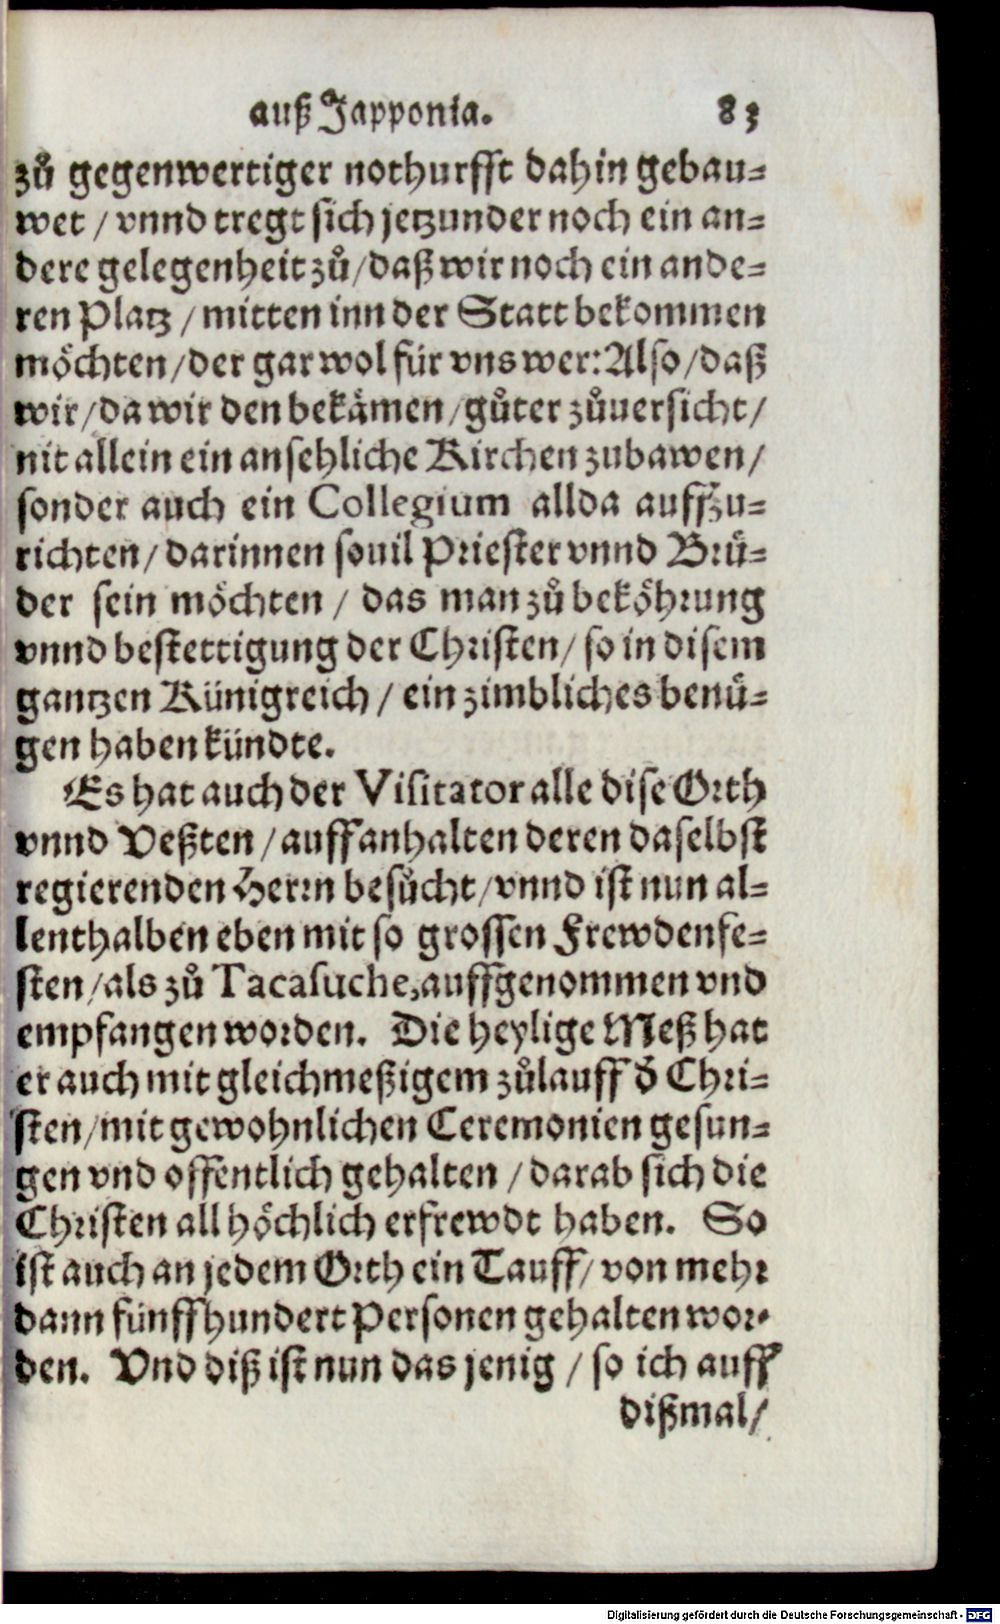 auß Japponia. 83
zů gegenwertiger nothurfft dahin gebau-
wet / vnnd tregt sich jetzunder noch ein an-
dere gelegenheit zů / daß wir noch ein ande-
ren Platz / mitten inn der Statt bekommen
möchten / der gar wol für vns wer: Also / daß
wir / da wir den bekämen / gůter zůuersicht /
nit allein ein ansehliche Kirchen zubawen /
sonder auch ein Collegium allda auffzu-
richten / darinnen souil Priester vnnd Brü-
der sein möchten / das man zů beköhrung
vnnd bestettigung der Christen / so in disem
gantzen Künigreich / ein zimbliches benü-
gen haben kündte.
Es hat auch der Visitator alle dise Orth
vnnd Veßten / auff anhalten deren daselbst
regierenden Herrn besůcht / vnnd ist nun al-
lenthalben eben mit so grossen Frewdenfe-
sten / als zů Tacasuche, auffgenommen vnd
empfangen worden. Die heylige Meß hat
er auch mit gleichmeßigem zůlauff d̄ Chri-
sten / mit gewohnlichen Ceremonien gesun-
gen vnd offentlich gehalten / darab sich die
Christen all höchlich erfrewdt haben. So
ist auch an jedem Orth ein Tauff / von mehr
dann fünffhundert Personen gehalten wor-
den. Vnd diß ist nun das jenig / so ich auff
dißmal /
Digitalisierung gefördert durch die Deutsche Forschungsgemeinschaft - DFG